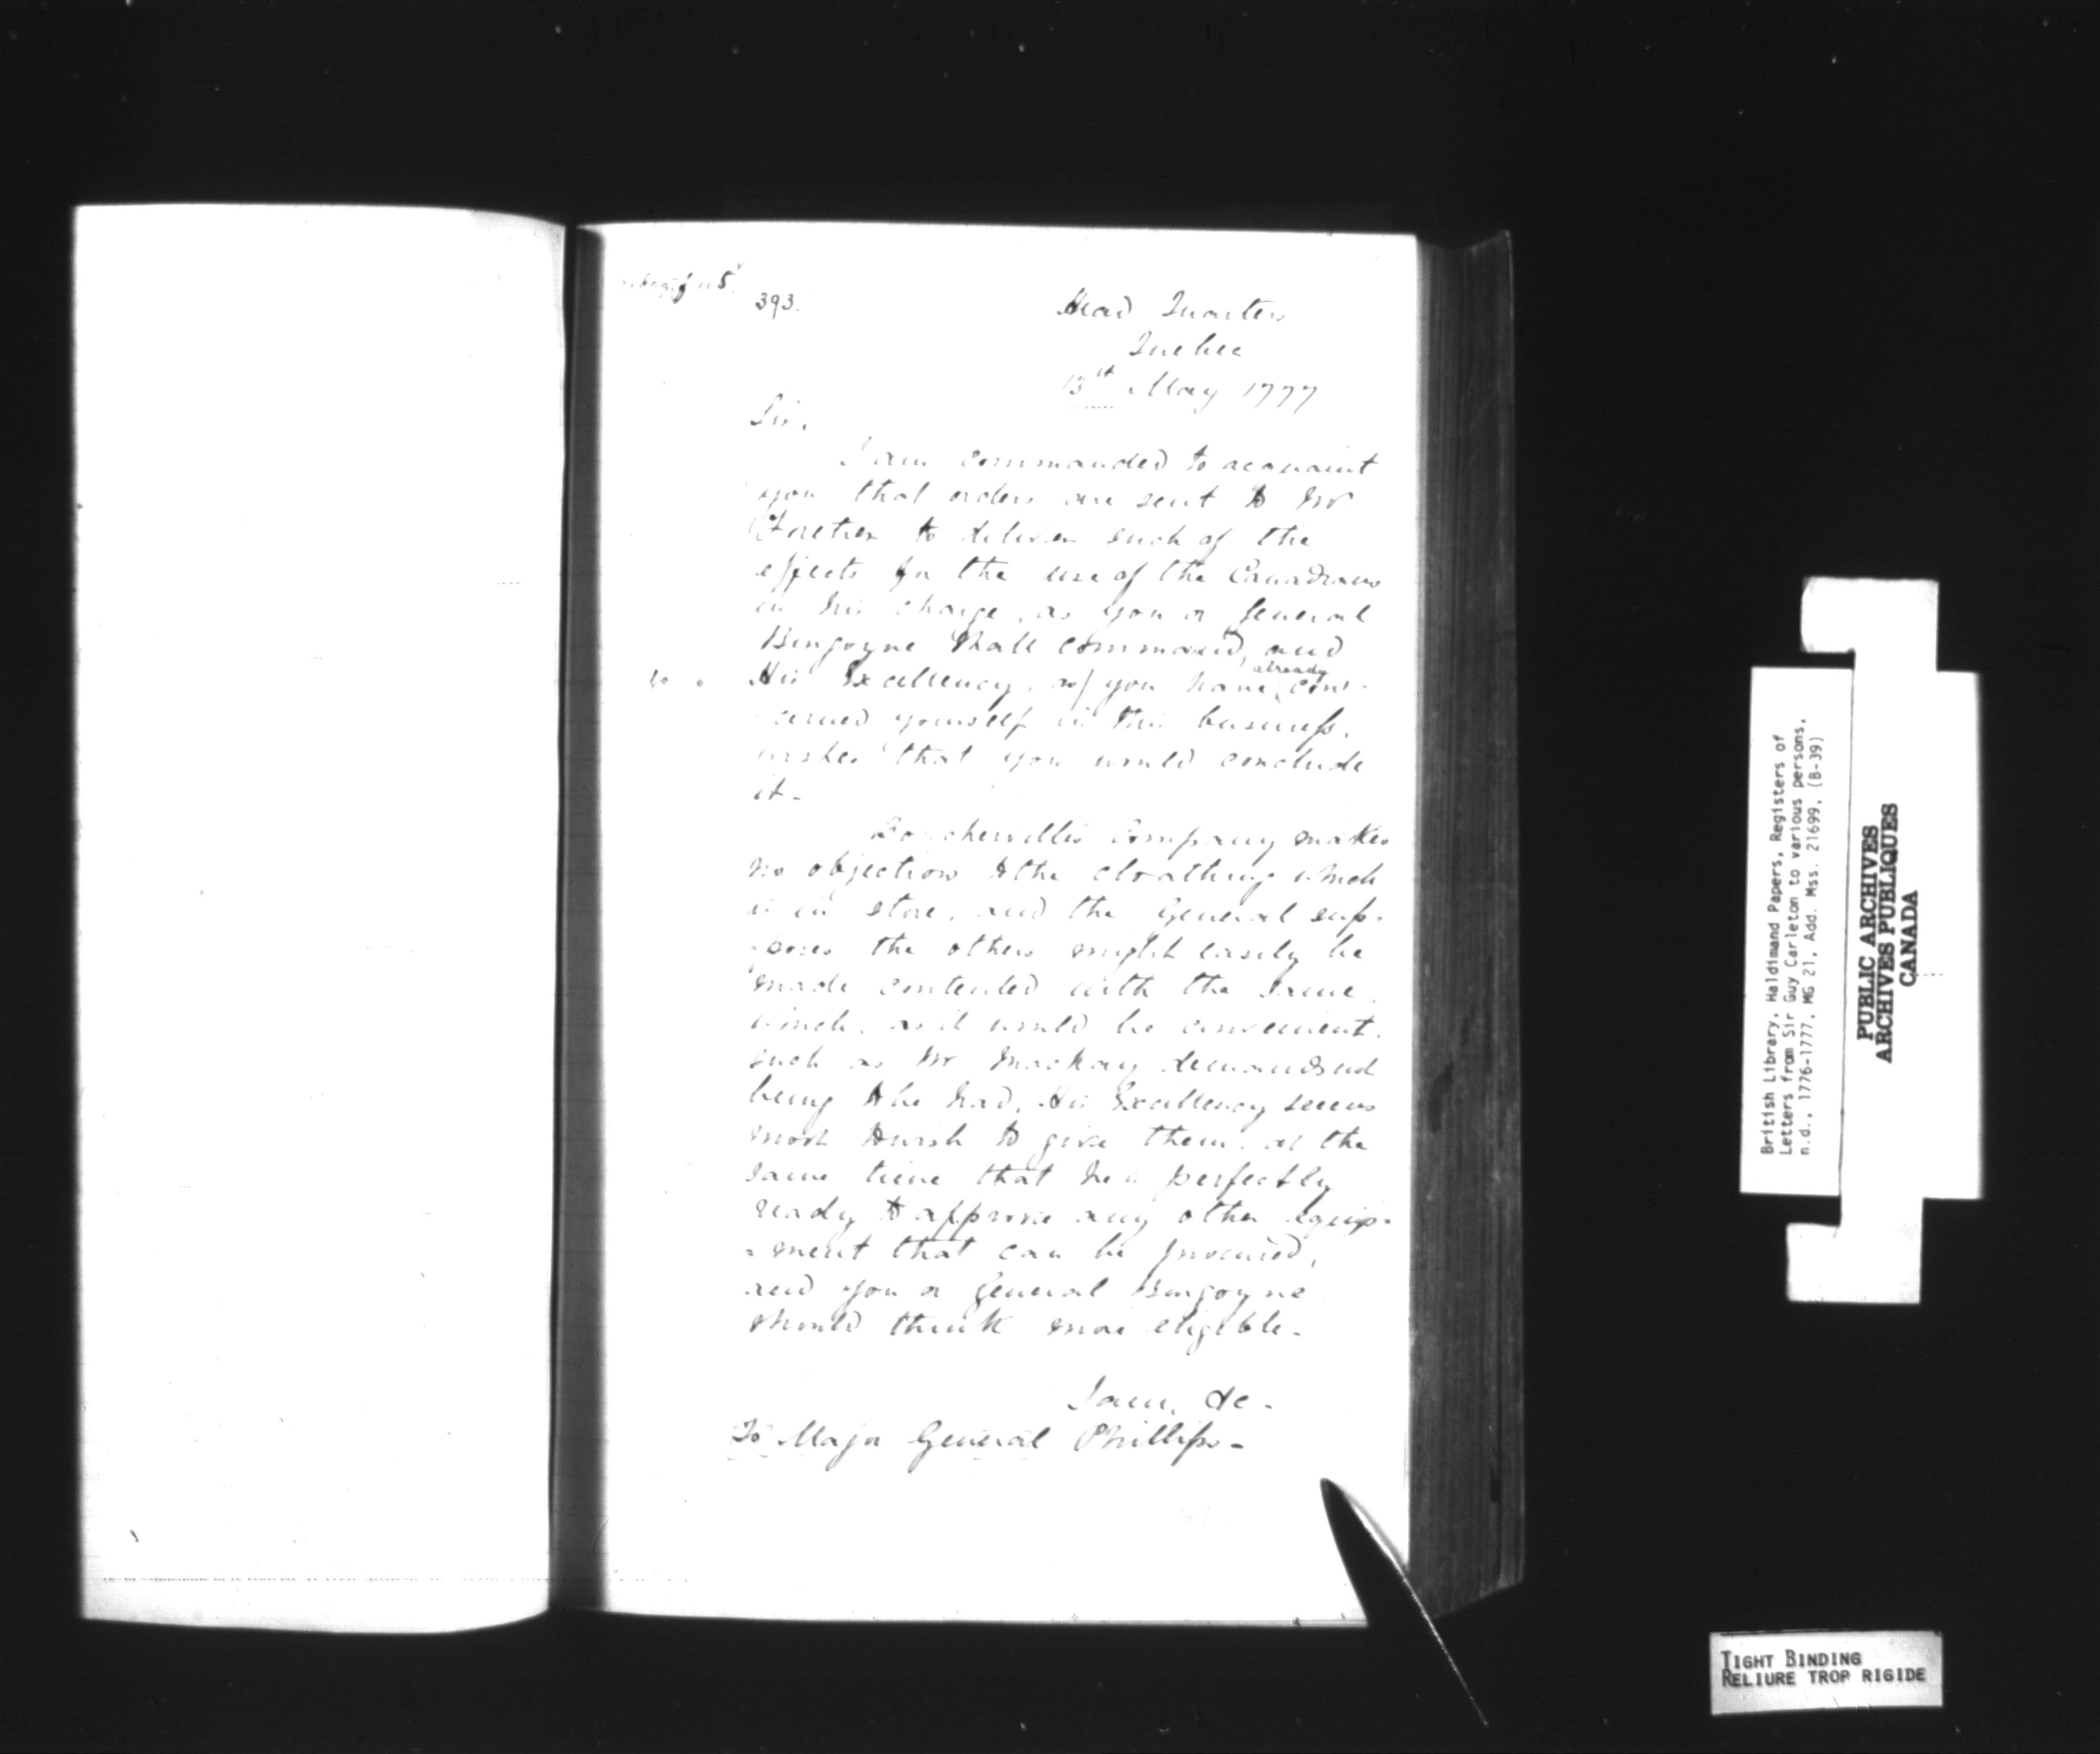 393.
Head Quarters
Quebec
13th May 1777
Sir,
I am commanded to acquaint
you that orders are sent to Mr
to deliver such of the
effects for the use of the Canadians
in his charge, as you or General
Burgoyne shall command, and
His Excellency, as you have already con-
-cerned yourself in this business,
wishes that you would conclude
it -
Boucherville's Company makes
no objection to the cloathing which
is in store, and the General sup-
-poses the others might easily be
made contented with the same,
which, as it would be convenient,
such as Mr Mackay demands not
being to be had, His Excellency seems
most to wish to give them, at the
same time that he is perfectly
ready to approve any other equip-
-ment that can be procured,
and you or General Burgoyne
should think more eligible -
I am, &c -
To Major General Phillips -
British Library, Haldimand Papers, Registers of
Letters from Sir Guy Carleton to various persons,
n.d., 1776-1777, MG 21, Add. Mss. 21699, (B-39)
PUBLIC ARCHIVES
ARCHIVES PUBLIQUES
CANADA
TIGHT BINDING
RELIURE TROP RIGIDE